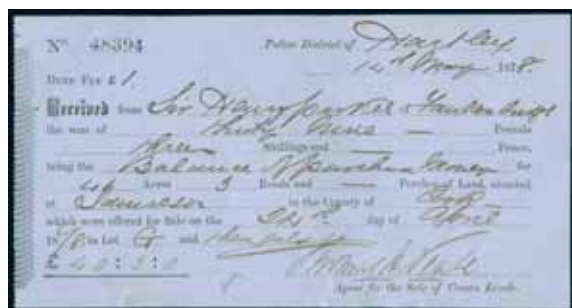 No 48394 Police District of Hartley
14th May 1878.
Deed Fee £1.
Received from Sir Henry Parkes &
the sum of Thirty Nine — Pounds
Three Shillings and — Pence,
being the Balance of purchase Money for
Acres 3 Roods and — Perches of Land, situated
at Jamieson in the County of Cook
which were offered for Sale on the day of April
1878 in Lot G and
£ 40 : 3 : 0
Agent for the Sale of Crown Lands.